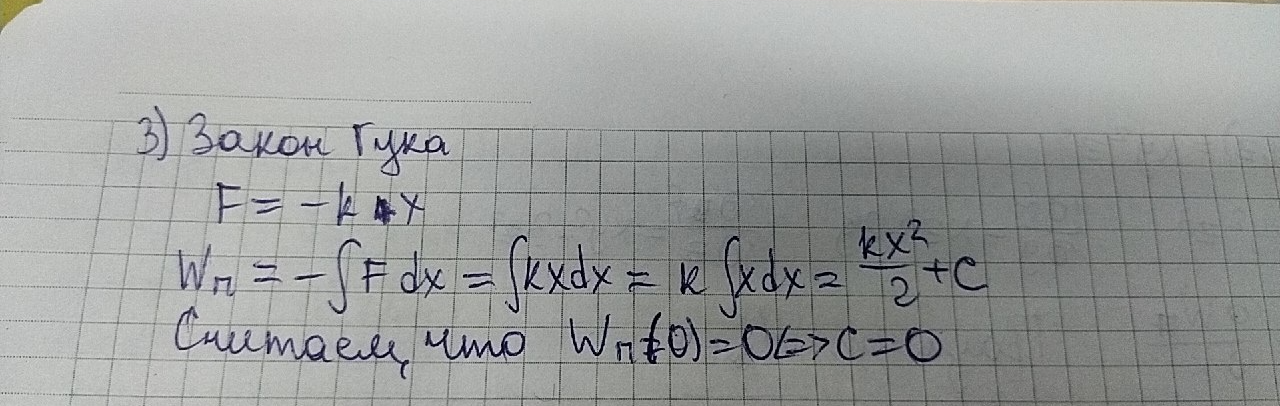 3) Закон Гука
F = -k x
Wп = -∫F dx = ∫kxdx = k ∫xdx = kx²/2 + C
Считаем, что Wп(0)=0 <=> C=0